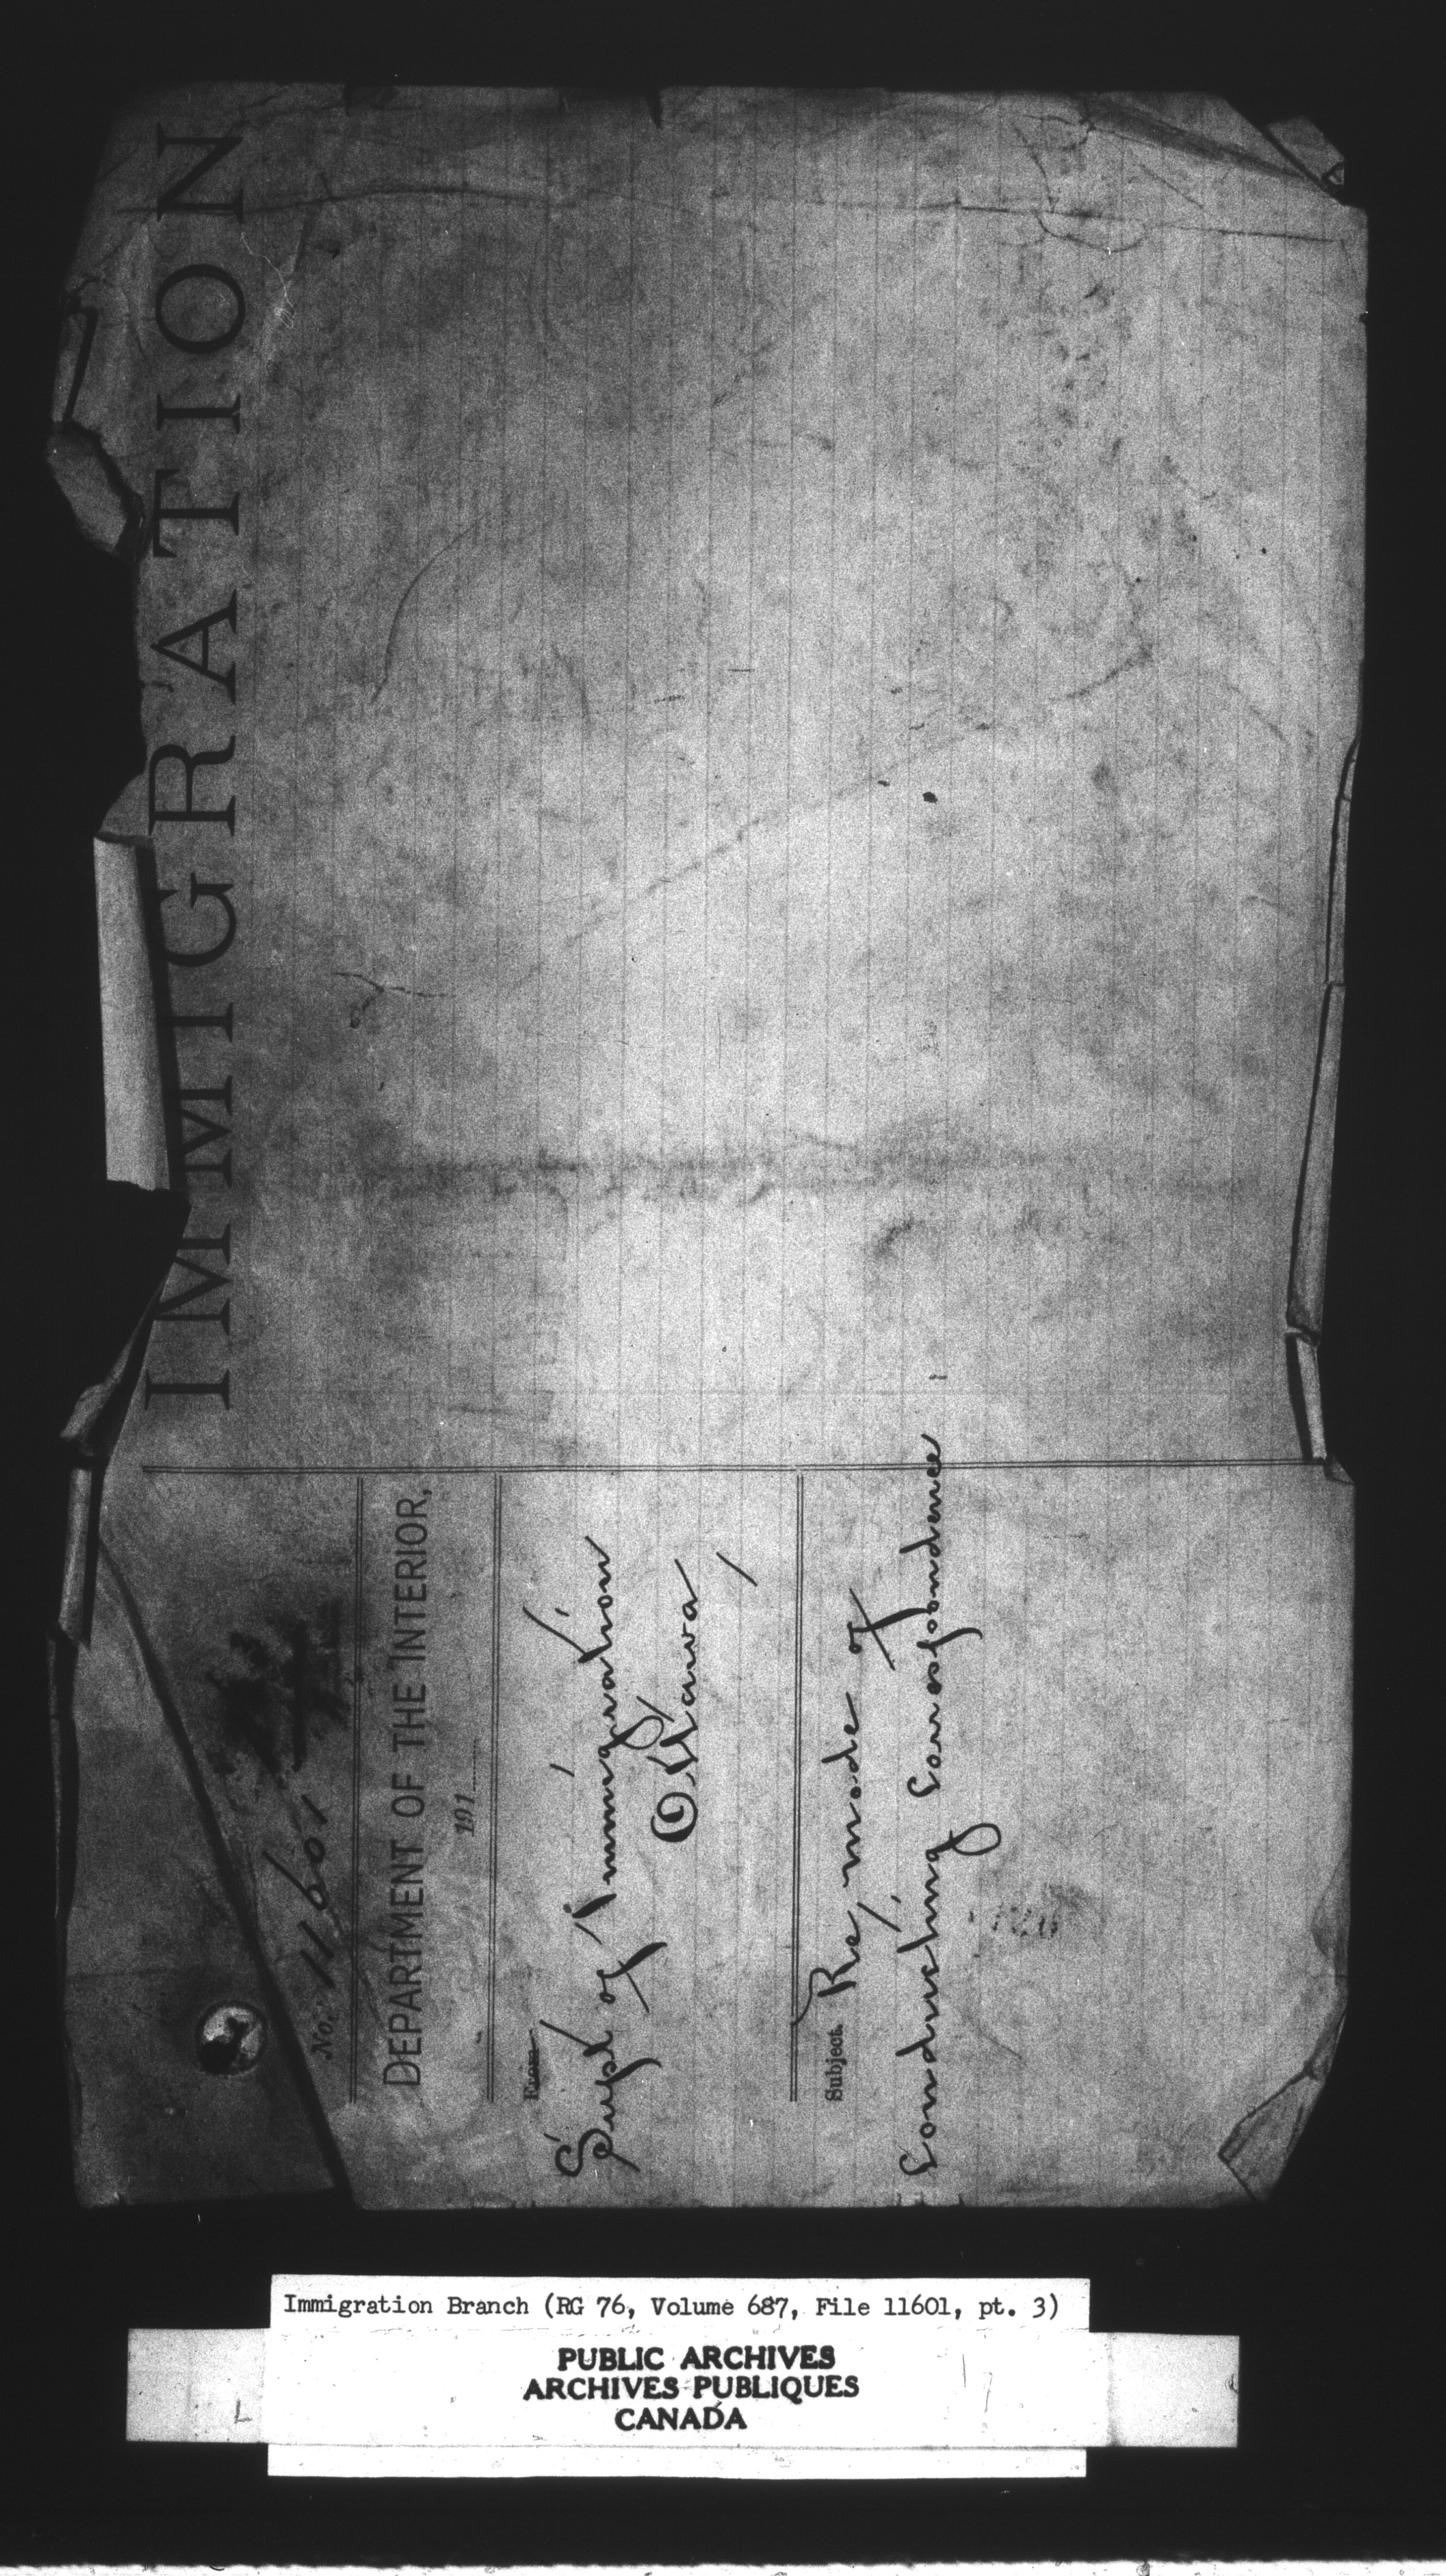 IMMIGRATION
No. 11601
DEPARTMENT OF THE INTERIOR,
191
From
Supt of Immigration
Ottawa
Subject. Re, mode of
Conducting Correspondence
Immigration Branch (RG 76, Volume 687, File 11601, pt. 3)
PUBLIC ARCHIVES
ARCHIVES PUBLIQUES
CANADA
L